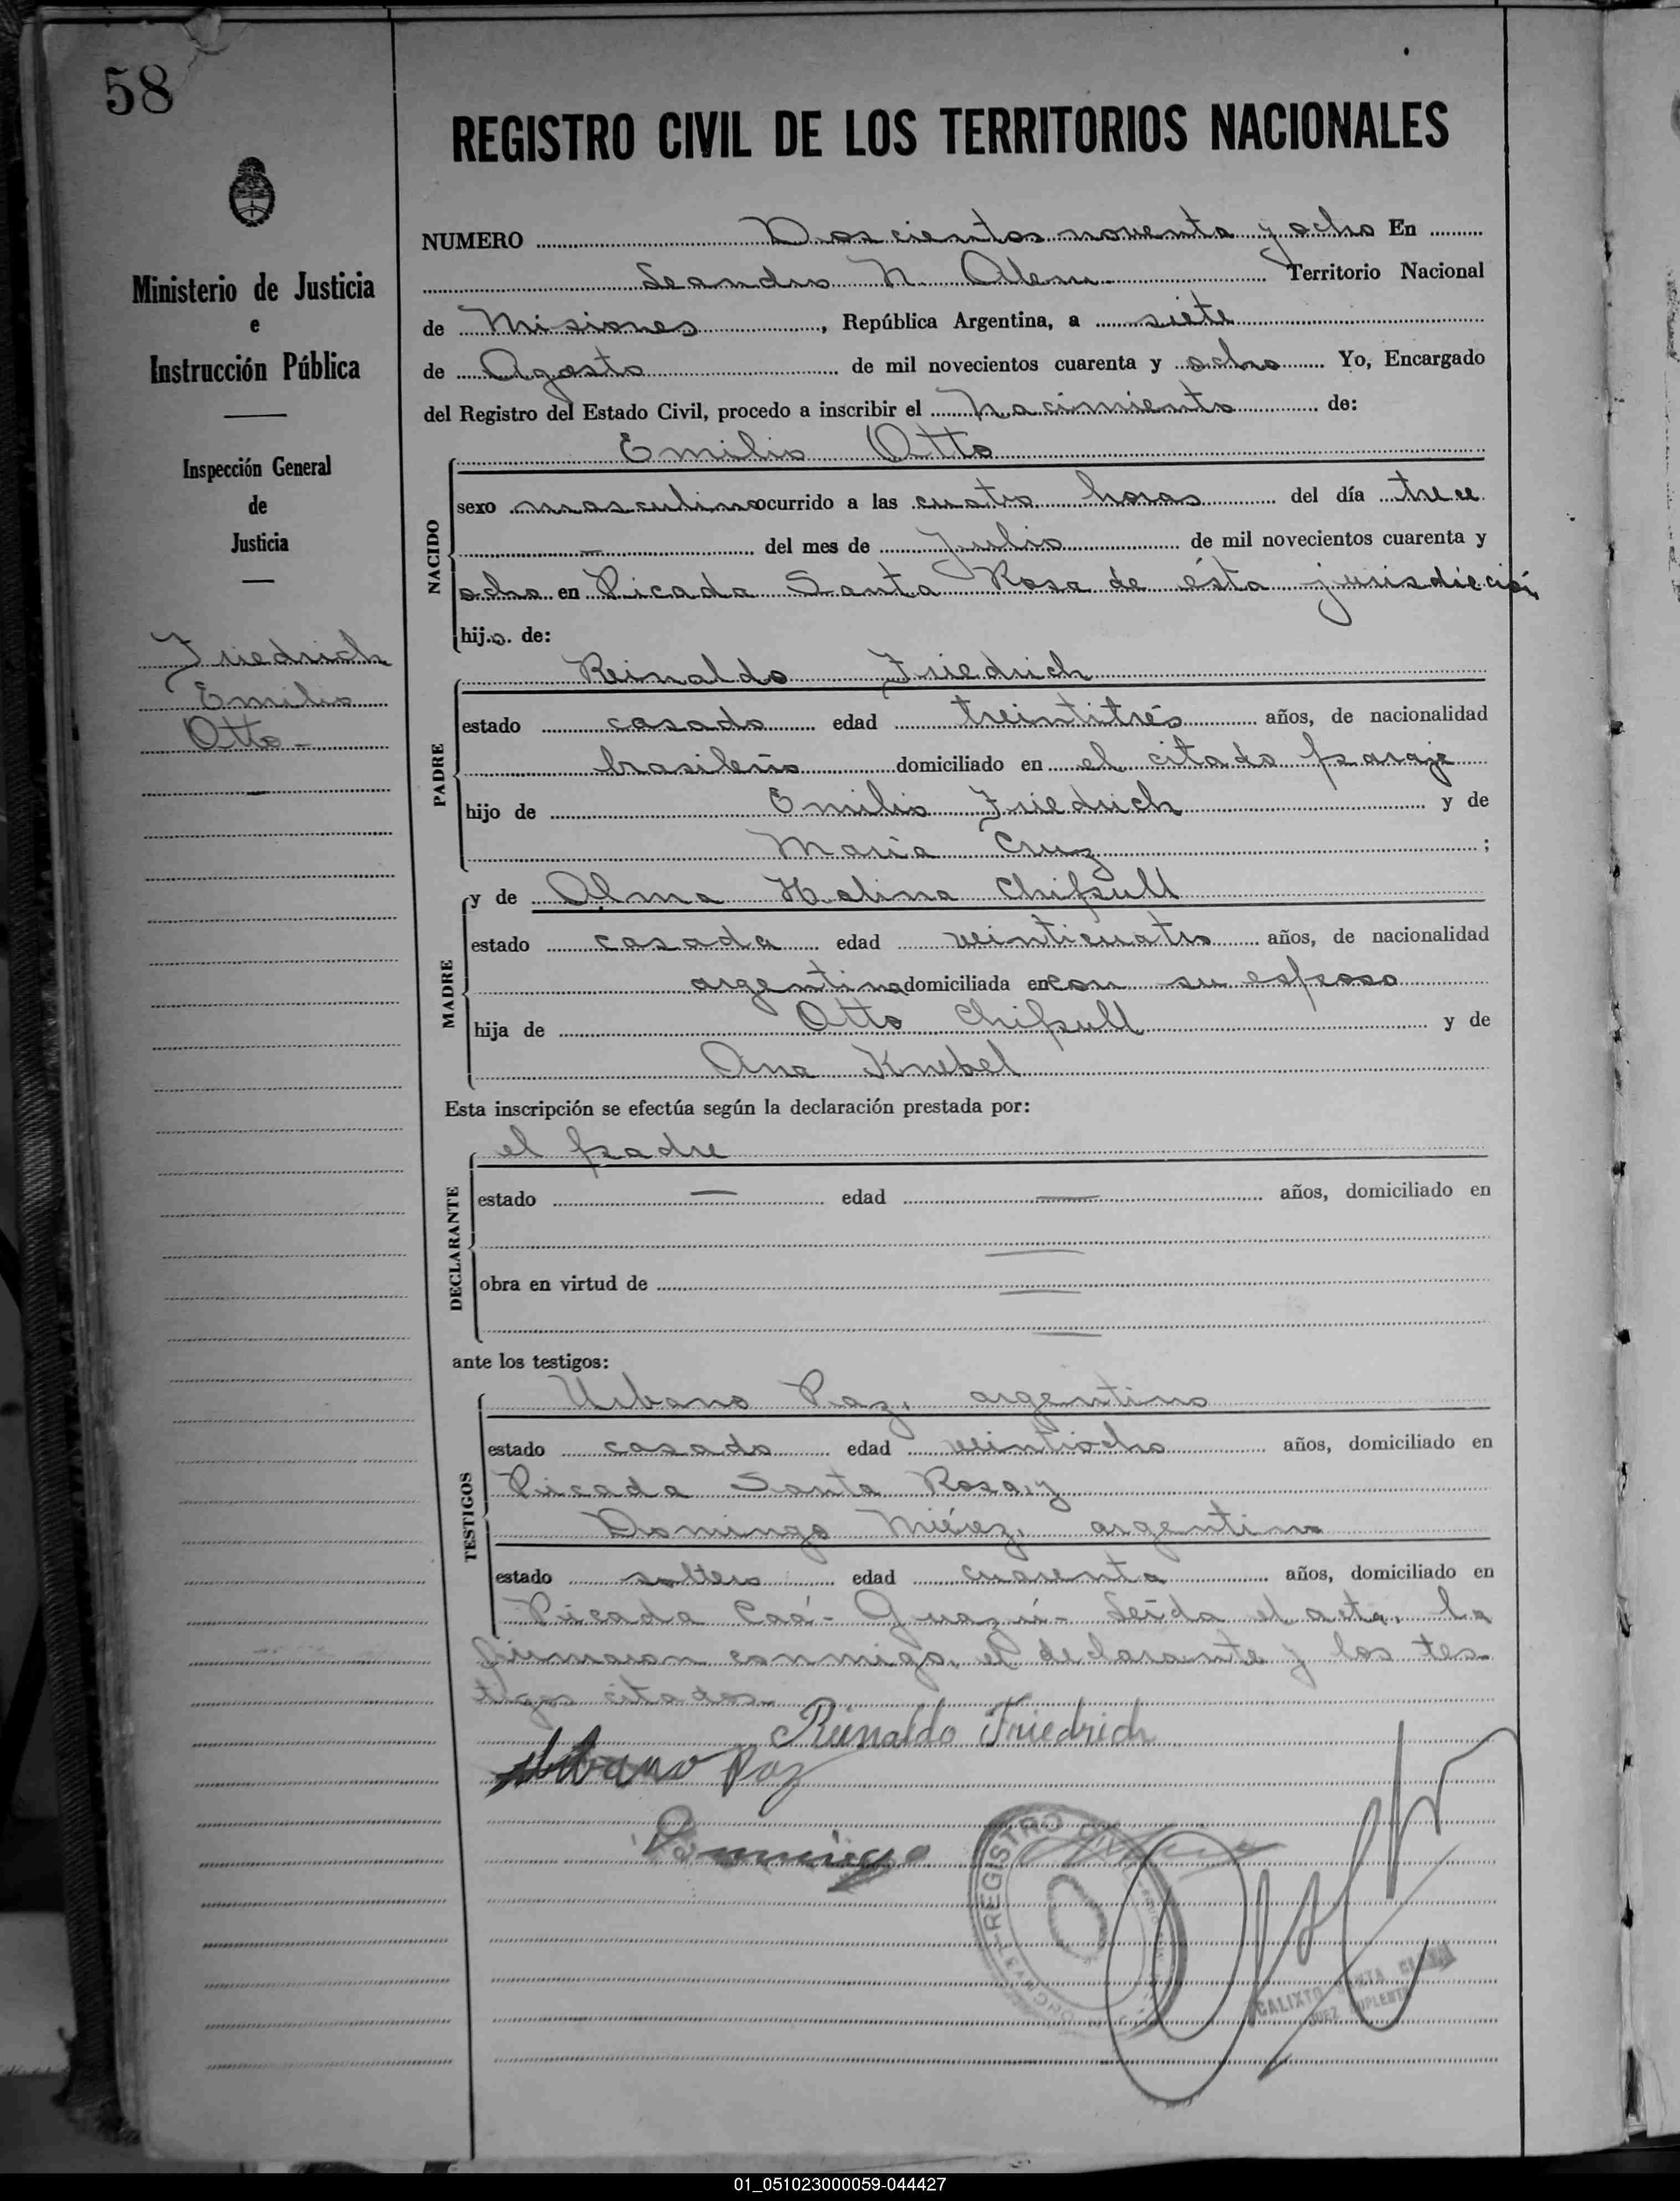 58
REGISTRO CIVIL DE LOS TERRITORIOS NACIONALES
Ministerio de Justicia
e
Instrucción Pública
Inspección General
de
Justicia
Friedrich
Emilio
Otto -
NUMERO Doscientos noventa y ocho En
Leandro N. Alem Territorio Nacional
de Misiones, República Argentina, a siete
de Agosto de mil novecientos cuarenta y ocho Yo, Encargado
del Registro del Estado Civil, procedo a inscribir el nacimiento de:
Emilio Otto
NACIDO
sexo masculino ocurrido a las cuatro horas del día trece
— del mes de Julio de mil novecientos cuarenta y
ocho en Picada Santa Rosa de ésta jurisdicción
hijo de:
Reinaldo Friedrich
PADRE
estado casado edad treintitrés años, de nacionalidad
brasileño domiciliado en el citado paraje
hijo de Emilio Friedrich y de
Maria Cruz ;
y de Alma Halina Chipull
MADRE
estado casada edad veinticuatro años, de nacionalidad
argentina domiciliada en con su esposo
hija de Otto Chipull y de
Ana Knebel
Esta inscripción se efectúa según la declaración prestada por:
el padre
DECLARANTE
estado — edad — años, domiciliado en
—
obra en virtud de —
—
ante los testigos:
Urbano Paz, argentino
TESTIGOS
estado casado edad veintiocho años, domiciliado en
Picada Santa Rosa, y
Domingo Miérez, argentino
estado soltero edad cuarenta años, domiciliado en
Picada Caá-Guazú- Leída el acta, la
firmaron conmigo, el declarante y los tes-
tigos citados.
Reinaldo Friedrich
Urbano Paz
Domingo
REGISTRO CIVIL
CALIXTO
JUEZ SUPLENTE
01_051023000059-044427